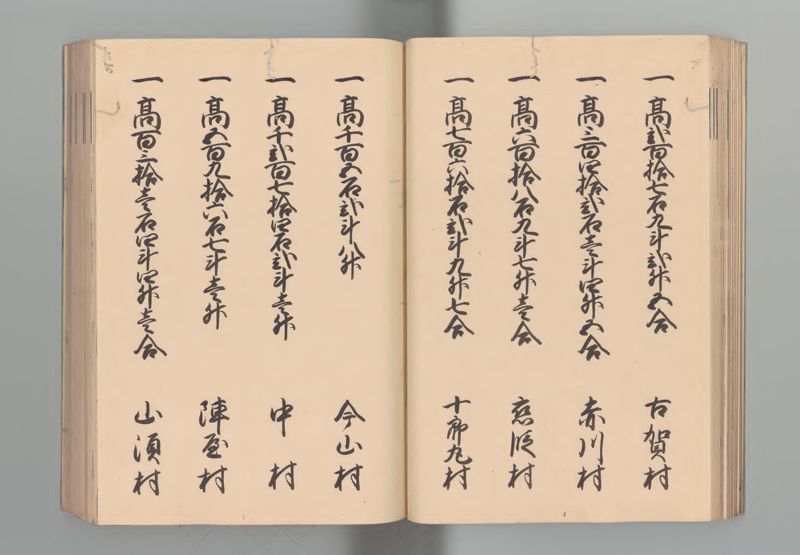 一 高弐百拾七石九斗弐升五合 古賀村
一 高三百四拾弐石壱斗四升五合 赤川村
一 高六百拾八石九斗七升壱合
一 高七百六拾石弐斗九升七合 十郎丸村
一 高千百五石弐斗八升 今山村
一 高千弐百七拾四石弐斗壱升 中村
一 高五百九拾六石七斗壱升 陣屋村
一 高百三拾壱石四斗四升壱合 山須村